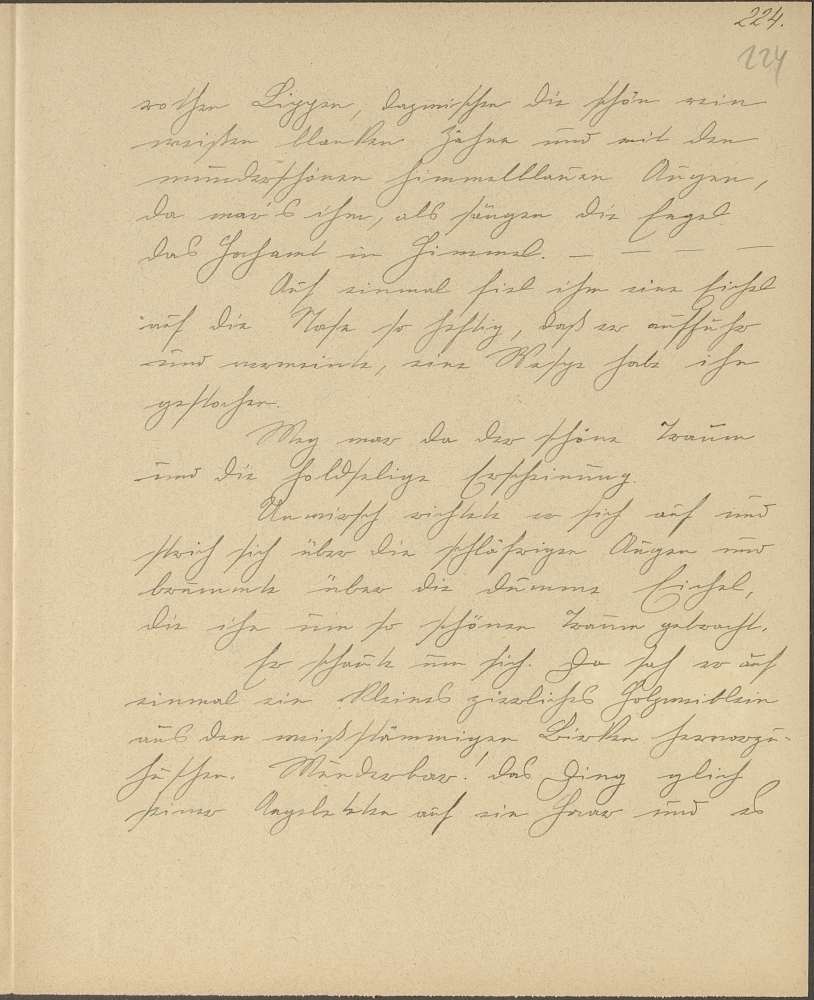 224.
224
rothen Lippen, dazwischen die schön rein
weißen blanken Zähne und mit den
wunderschönen himmelblauen Augen,
da war's ihm, als sängen die Engel
das Hochamt im Himmel. — — — —
Auf einmal fiel ihm eine Eichel
auf die Nase so heftig, daß er auffuhr
und vermeinte, eine Wespe habe ihn
gestochen.
Weg war da der schöne Traum
und die holdselige Erscheinung.
Unwirsch richtete er sich auf und
strich sich über die schläfrigen Augen und
brummte über die dumme Eichel,
die ihn um so schönen Traum gebracht.
Er schaute um sich. Da sah er auf
einmal ein kleines zierliches Holzweiblein
aus den weißstämmigen Birken hervorzu-
huschen. Wunderbar! das Ding glich
seiner Angebeteten auf ein Haar und es